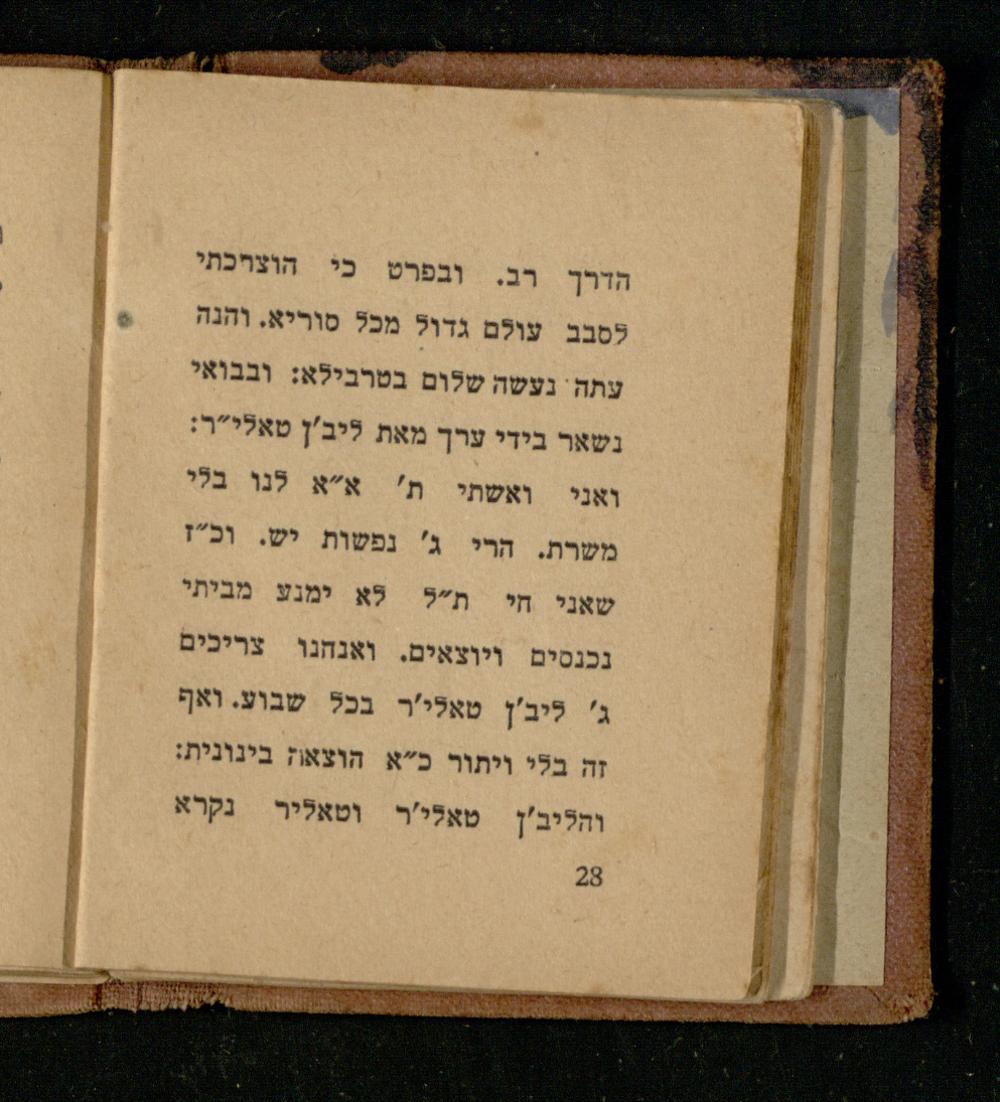 הדרך רב. ובפרט כי הוצרכתי
לסבב עולם גדול מכל סוריא. והנה
עתה נעשה שלום בטרבילא: ובבואי
נשאר בידי ערך מאת ליב'ן טאלי״ר:
ואני ואשתי ת' א״א לנו בלי
משרת. הרי ג' נפשות יש. וכ״ז
שאני חי ת״ל לא ימנע מביתי
נכנסים ויוצאים. ואנחנו צריכים
ג' ליב'ן טאלי'ר בכל שבוע. ואף
זה בלי ויתור כ״א הוצאה בינונית:
והליב'ן טאלי'ר וטאליר נקרא
28